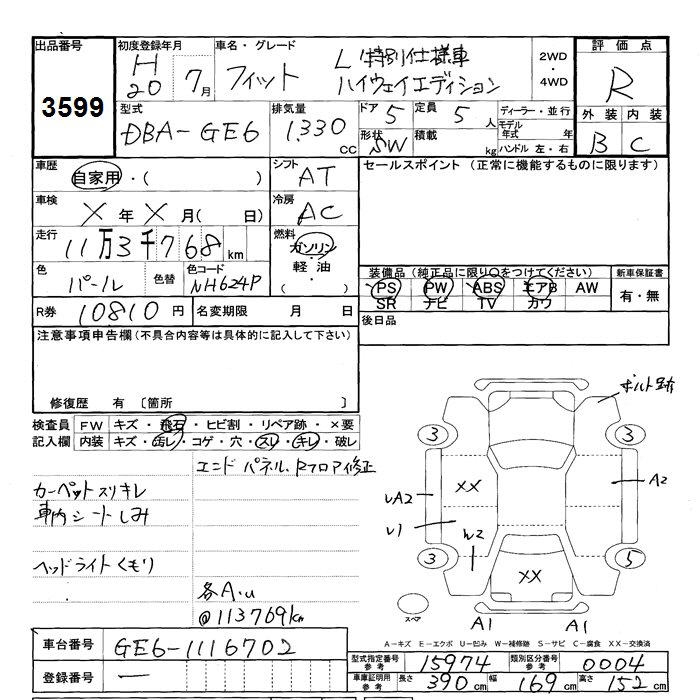 出品番号
3599
初度登録年月
H20 7月
車名・グレード
フィット L 特別仕様車
ハイウェイエディション
2WD
・
4WD
評価点
R
外装 内装
B C
型式
DBA-GE6
排気量
1330 cc
ドア 5
定員 5人
形状 SW
積載 kg
ディーラー・並行
モデル年式 年
ハンドル 左・右
車歴
自家用・( )
シフト
AT
セールスポイント (正常に機能するものに限ります)
車検
X年X月( 日)
冷房
AC
走行
11万3千768km
燃料
ガソリン
・
軽油
・
( )
色
パール
色替
色コード
NH624P
装備品 (純正品に限り○をつけてください)
PS PW ABS エアB AW
SR ナビ TV カワ
新車保証書
有・無
R券 10810円
名変期限 月 日
後日品
注意事項申告欄 (不具合内容等は具体的に記入して下さい)
修復歴 有 〔箇所 〕
検査員
記入欄
FW キズ・飛石・ヒビ割・リペア跡・×要
内装 キズ・汚レ・コゲ・穴・スレ・キレ・破レ
エンドパネル、Rフロア修正
カーペットスリキレ
車内シートしみ
ヘッドライトくもり
各A・u
@113769km
ボルト跡
3 3
XX
UA2
A2
U1
W2
3 5
XX
スペア
A1 A1
A-キズ E-エクボ U-凹み W-補修跡 S-サビ C-腐食 XX-交換済
車台番号 GE6-1116702
登録番号 ー
型式指定番号
参考
15974
類別区分番号
参考
0004
車庫証明用
参考
長さ 390cm 幅 169cm 高さ 152cm